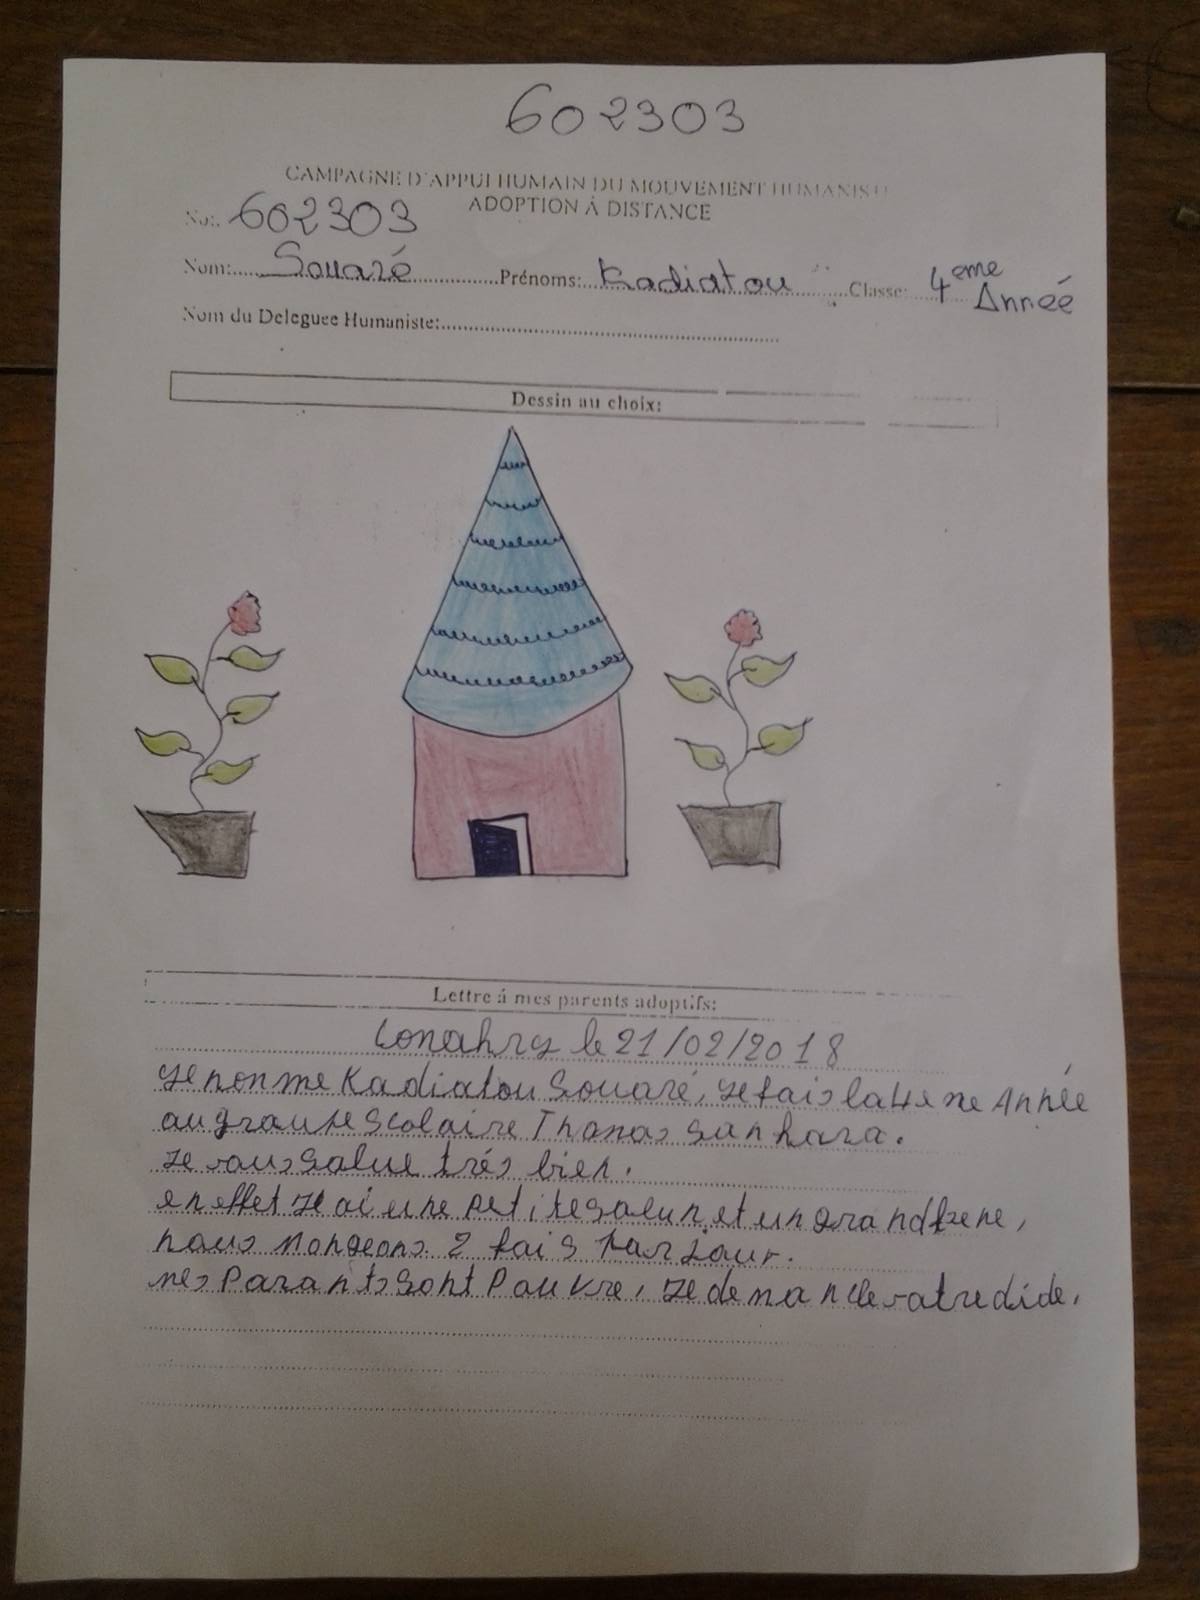 602303
CAMPAGNE D'APPUI HUMAIN DU MOUVEMENT HUMANIST
ADOPTION À DISTANCE
No: 602303
Nom: Souaré Prénoms: Kadiatou Classe: 4eme Année
Nom du Deleguee Humaniste:
Dessin au choix:
Lettre á mes parents adoptifs:
Conakry le 21/02/2018
Je nomme Kadiatou Souaré, Je fais la 4eme Année
au scolaire Thomas Sankara.
Je vous salue trés bien.
en effet J'ai une petite et un grand frene,
nous mongeons 2 fois par jour.
mes Parants sont Pauvre, Je demande votre dide,